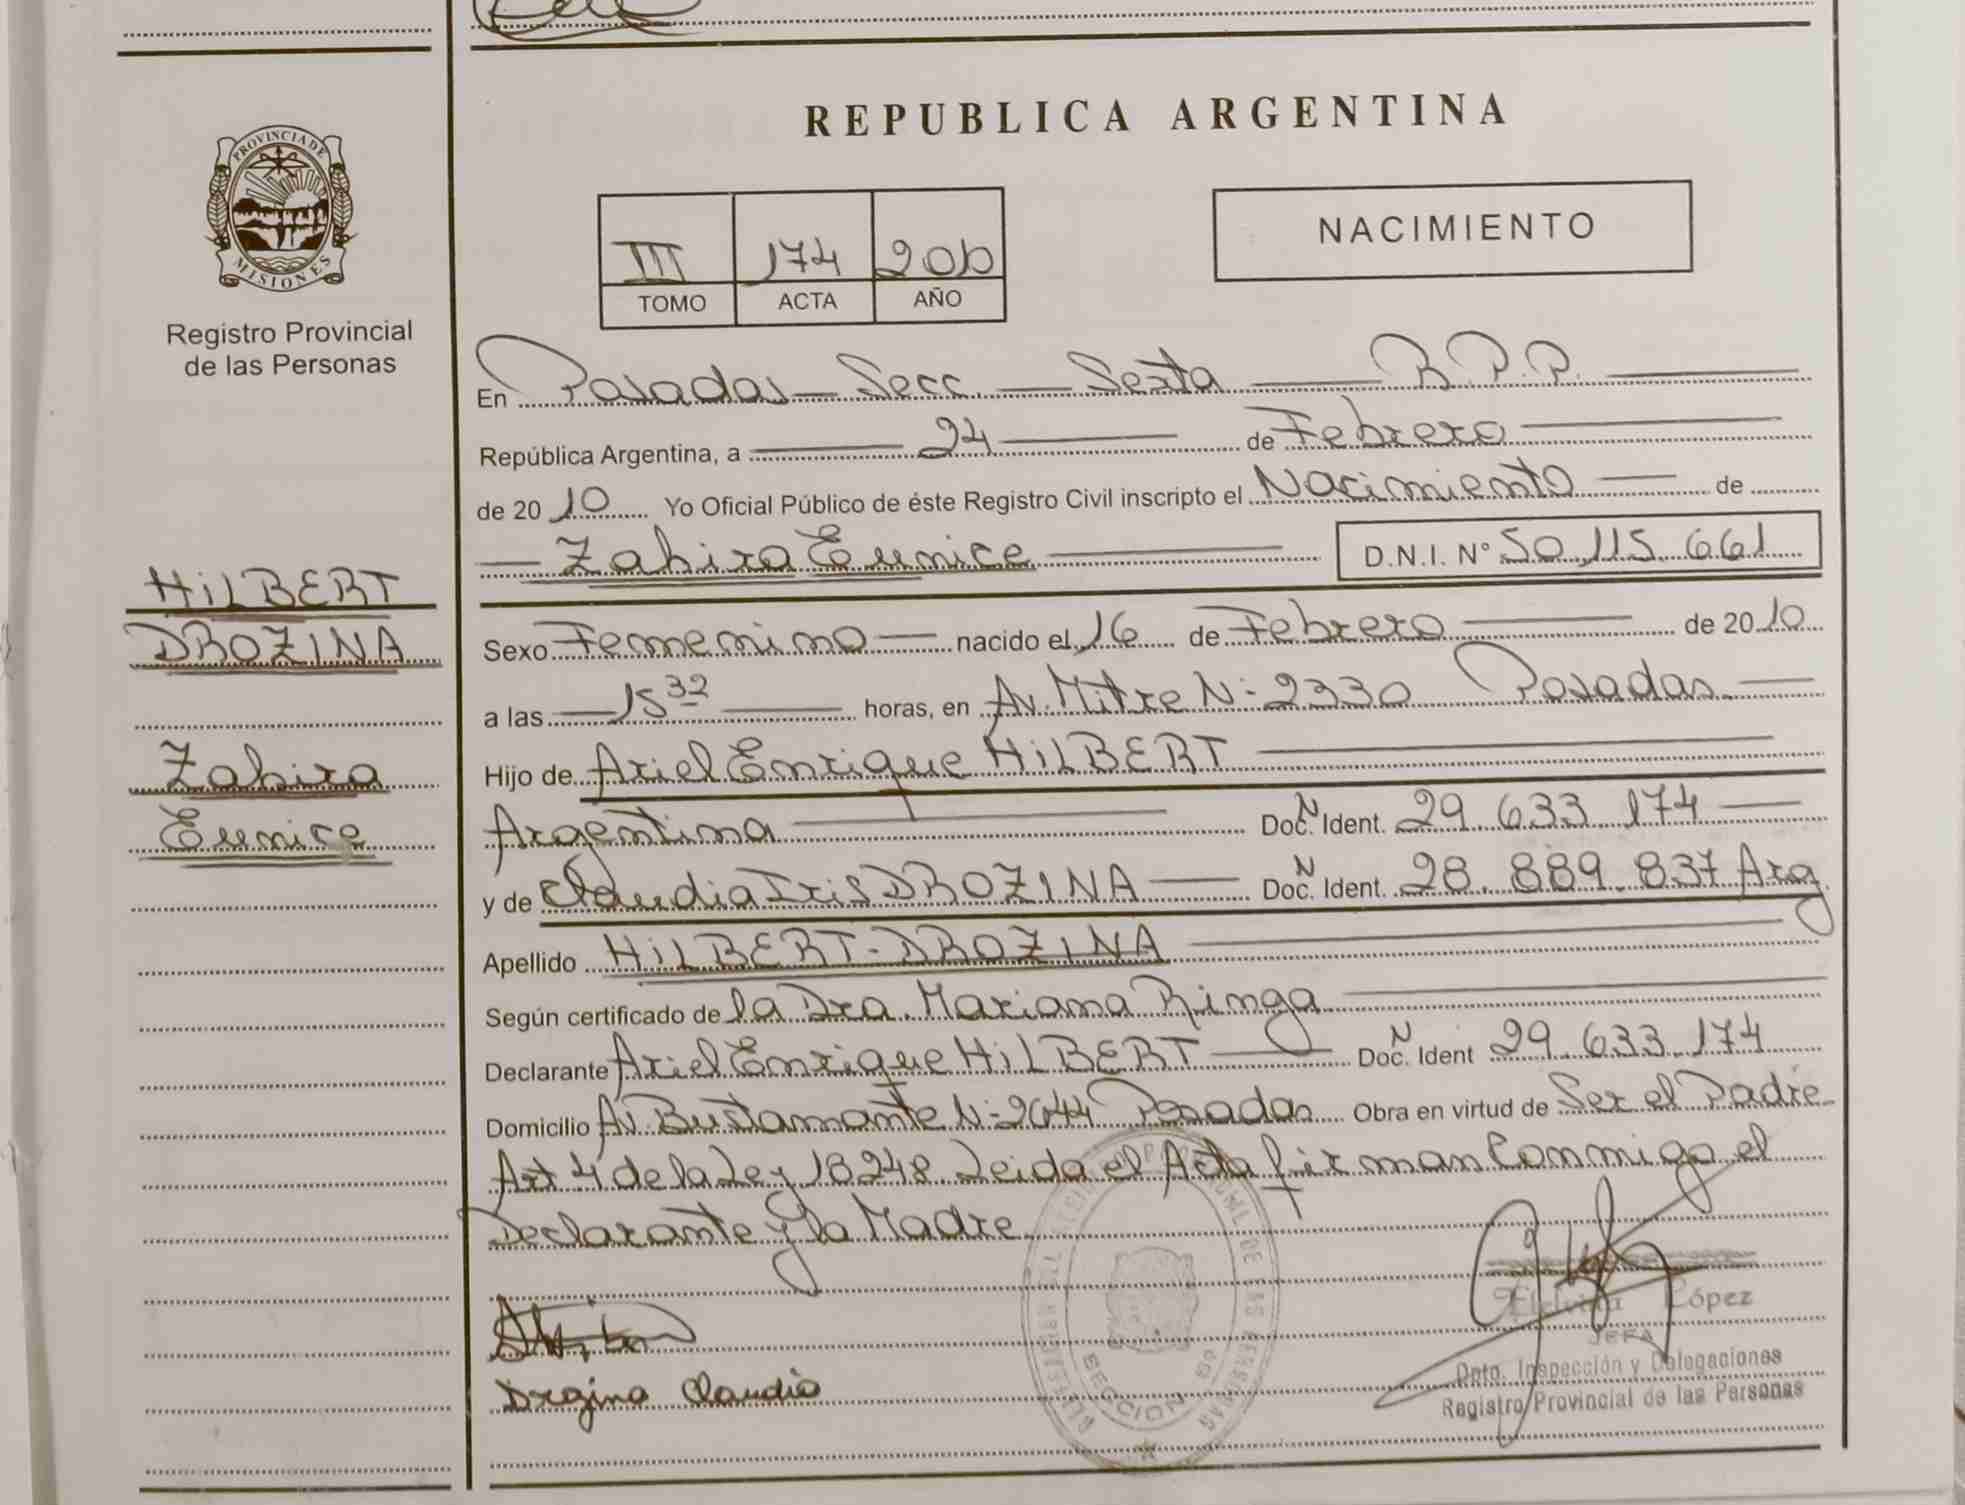 PROVINCIA DE
MISIONES
Registro Provincial
de las Personas
HiLBERT
DROZINA
Zahira
Eunice
REPUBLICA ARGENTINA
III 174 2010
TOMO ACTA AÑO
NACIMIENTO
En Posadas - Secc. - Sexta - R.P.P.
República Argentina, a 24 de Febrero
de 2010 Yo Oficial Público de éste Registro Civil inscripto el Nacimiento de
Zahira Eunice D.N.I. N° 50.115.661
Sexo Femenino nacido el 16 de Febrero de 2010
a las 15 32 horas, en Av. Mitre N: 2330 Posadas.
Hijo de Ariel Enrique HiLBERT
Argentina Doc. N Ident. 29.633.174
y de Claudia Iris DROZINA Doc. N Ident. 28.889.837 Arg
Apellido HiLBERT-DROZINA
Según certificado de la Dra. Mariana Ringa
Declarante Ariel Enrique HiLBERT Doc. N Ident 29.633.174
Domicilio Av. Bustamante N: 2644 Posadas Obra en virtud de Ser el Padre
Art 4 de la Ley 18248. Leida el Acta firman Conmigo el
Declarante y la Madre
Drozina Claudia
López
JEFA
Dpto. Inspección y Delegaciones
Registro Provincial de las Personas
SECCION